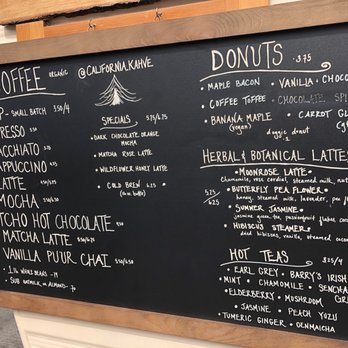 OFFEE ORGANIC
@CALIFORNIA.KAHVE
P - SMALL BATCH 3.50/4
RESSO 3.50
ACCHIATO
APPUCCINO
LATTE
MOCHA
TCHO HOT CHOCOLATE
MATCHA LATTE
VANILLA PU'UR CHAI
• 1 LB WHOLE BEANS - 19
• SUB OATMILK or ALMOND - .70
SPECIALS 5.75/6.75
• DARK CHOCOLATE ORANGE MOCHA
• MATCHA ROSE LATTE
• WILDFLOWER HONEY LATTE
• COLD BREW
DONUTS 3.75
• MAPLE BACON • VANILLA • CHOCO
• COFFEE TOFFEE • CHOCOLATE SPI
• BANANA MAPLE • CARROT GL
(vegan) doggie donut
HERBAL & BOTANICAL LATTES
• MOONROSE LATTE •
Chamomile, rose cordial, steamed milk, nut
5.75/6.25
• BUTTERFLY PEA FLOWER •
honey, steamed milk, lavender, pea fl
• SUMMER JASMINE •
jasmine green tea, passionfruit flakes, coco
• HIBISCUS STEAMER •
dried hibiscus, vanilla, steamed coco
HOT TEAS 3.25/4
• EARL GREY • BARRY'S IRISH
• MINT • CHAMOMILE • SENCHA
• ELDERBERRY • MUSHROOM GR
• JASMINE • PEACH YOZU
• TUMERIC GINGER • GENMAICHA